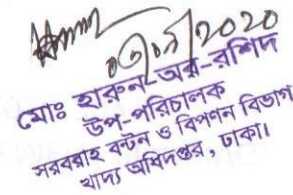 ০৩/০৯/2020
মোঃ হারুন-অর-রশিদ
উপ-পরিচালক
সরবরাহ বন্টন ও বিপণন বিভাগ
খাদ্য অধিদপ্তর, ঢাকা।